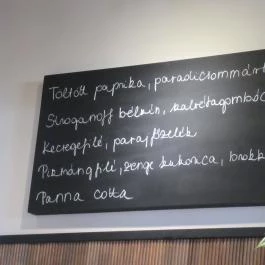 Töltött paprika, paradicsommárt
Stroganoff bélszín,
Kecsegefilé, paraj
Pisztrángfilé, zsenge kukorica, brokk
Panna cotta